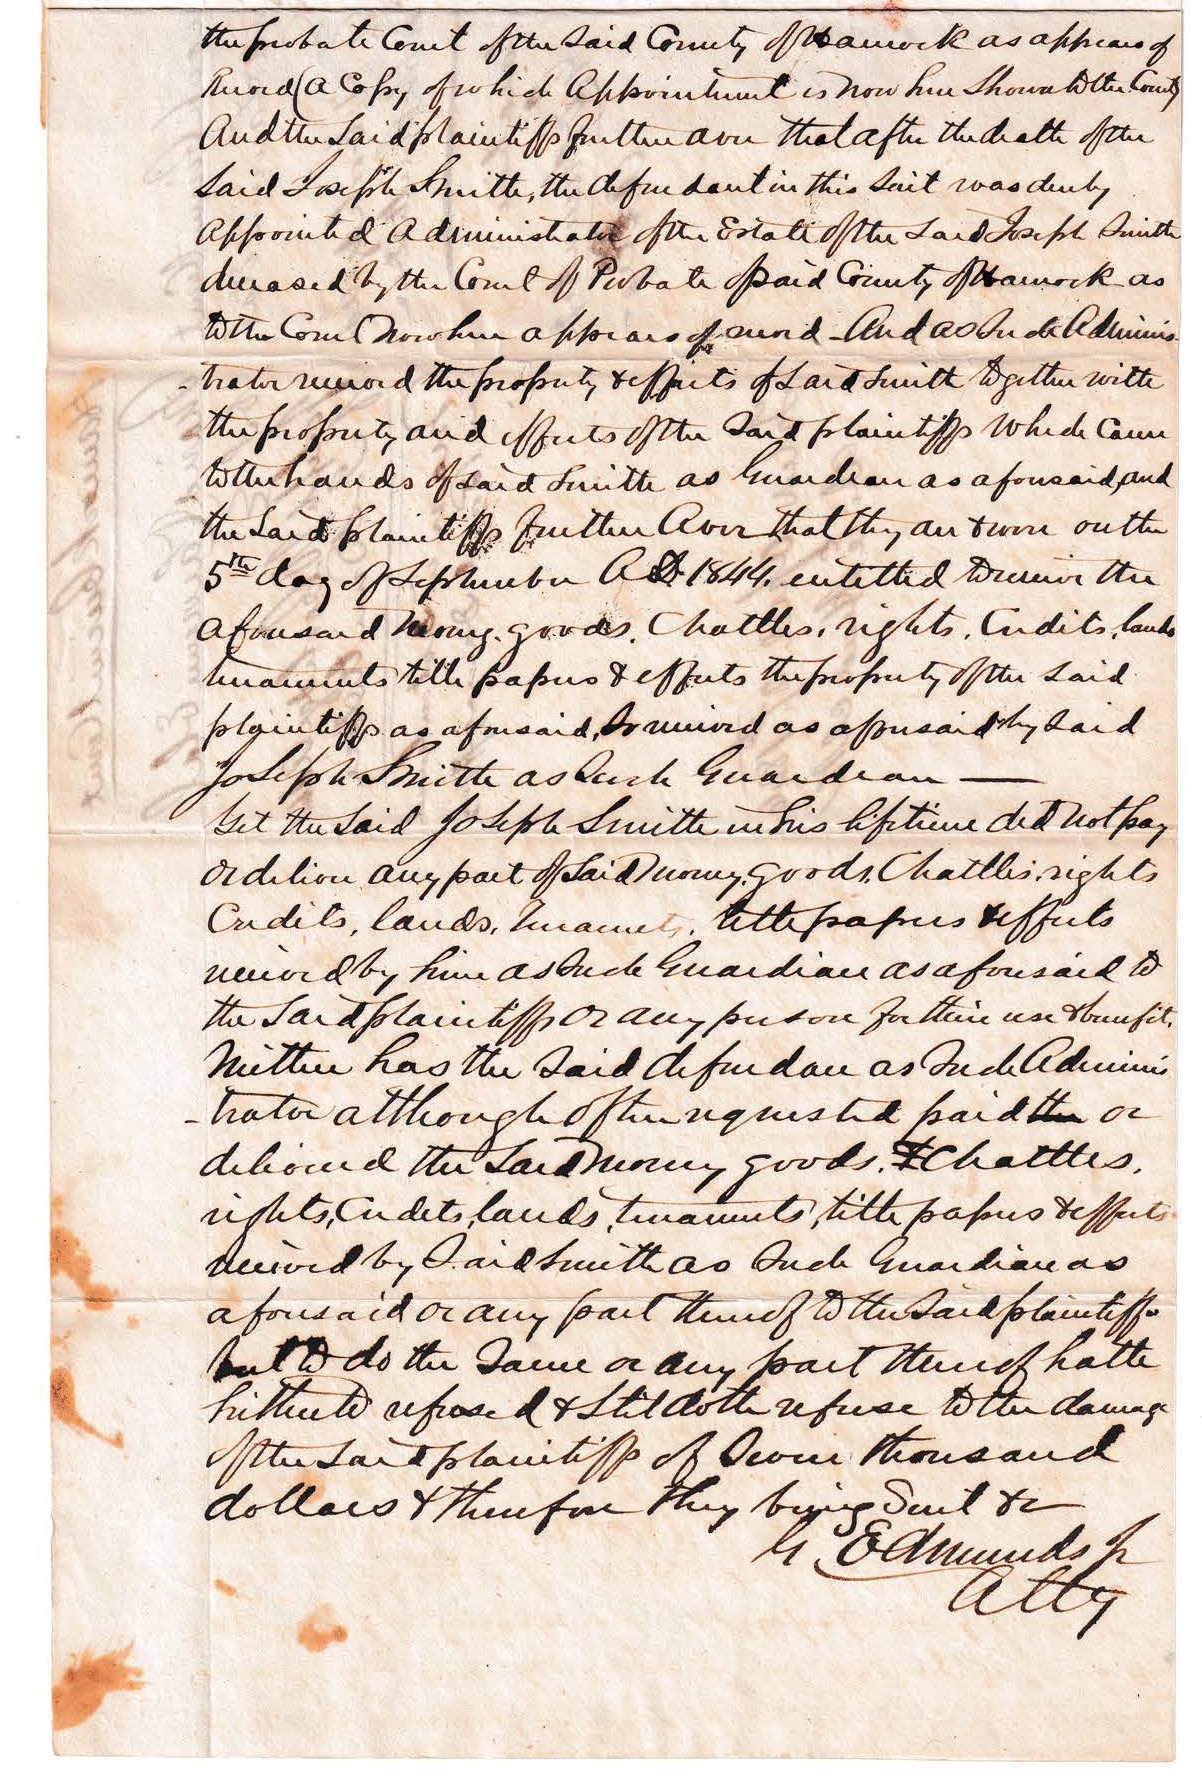 the probate Court of the said County of Hancock as appears of
Record (a Copy of which Appointment is now here shown to the Court)
And the said plaintiffs further aver that after the death of the
said Joseph Smith, the defendant in this suit was duly
appointed Administrator of the Estate of the said Joseph Smith
deceased by the Court of Probate of said County of Hancock as
to the Court now here appears of record - And as such Adminis-
-trator received the property & effects of said Smith together with
the property and effects of the said plaintiffs which came
to the hands of said Smith as Guardian as aforesaid, and
the said plaintiffs further aver that they are & were on the
5th day of September A.D. 1844, entitled to receive the
aforesaid money. goods. Chattles, rights. Credits, lands
tenaments title papers & effects the property of the said
plaintiffs as aforesaid, so received as aforesaid by said
Joseph Smith as such Guardian —
Yet the said Joseph Smith in his lifetime did not pay
or deliver any part of said money, goods. Chattles, rights
Credits, lands, tenaments. title papers & effects
received by him as such Guardian as aforesaid to
the said plaintiffs or any person for their use & benefit.
Neither has the said defendan as such Adminis
-trator although often requested paid the or
delivered the said money goods. & Chattles,
rights, Credits, lands, tenaments, title papers & effects
received by said Smith as such Guardian as
aforesaid or any part thereof to the said plaintiffs
but to do the same or any part thereof hath
hitherto refused & still doth refuse to the damage
of the said plaintiffs of seven thousand
dollars & therefore they bring suit &c
G. Edmunds Jr
Atty